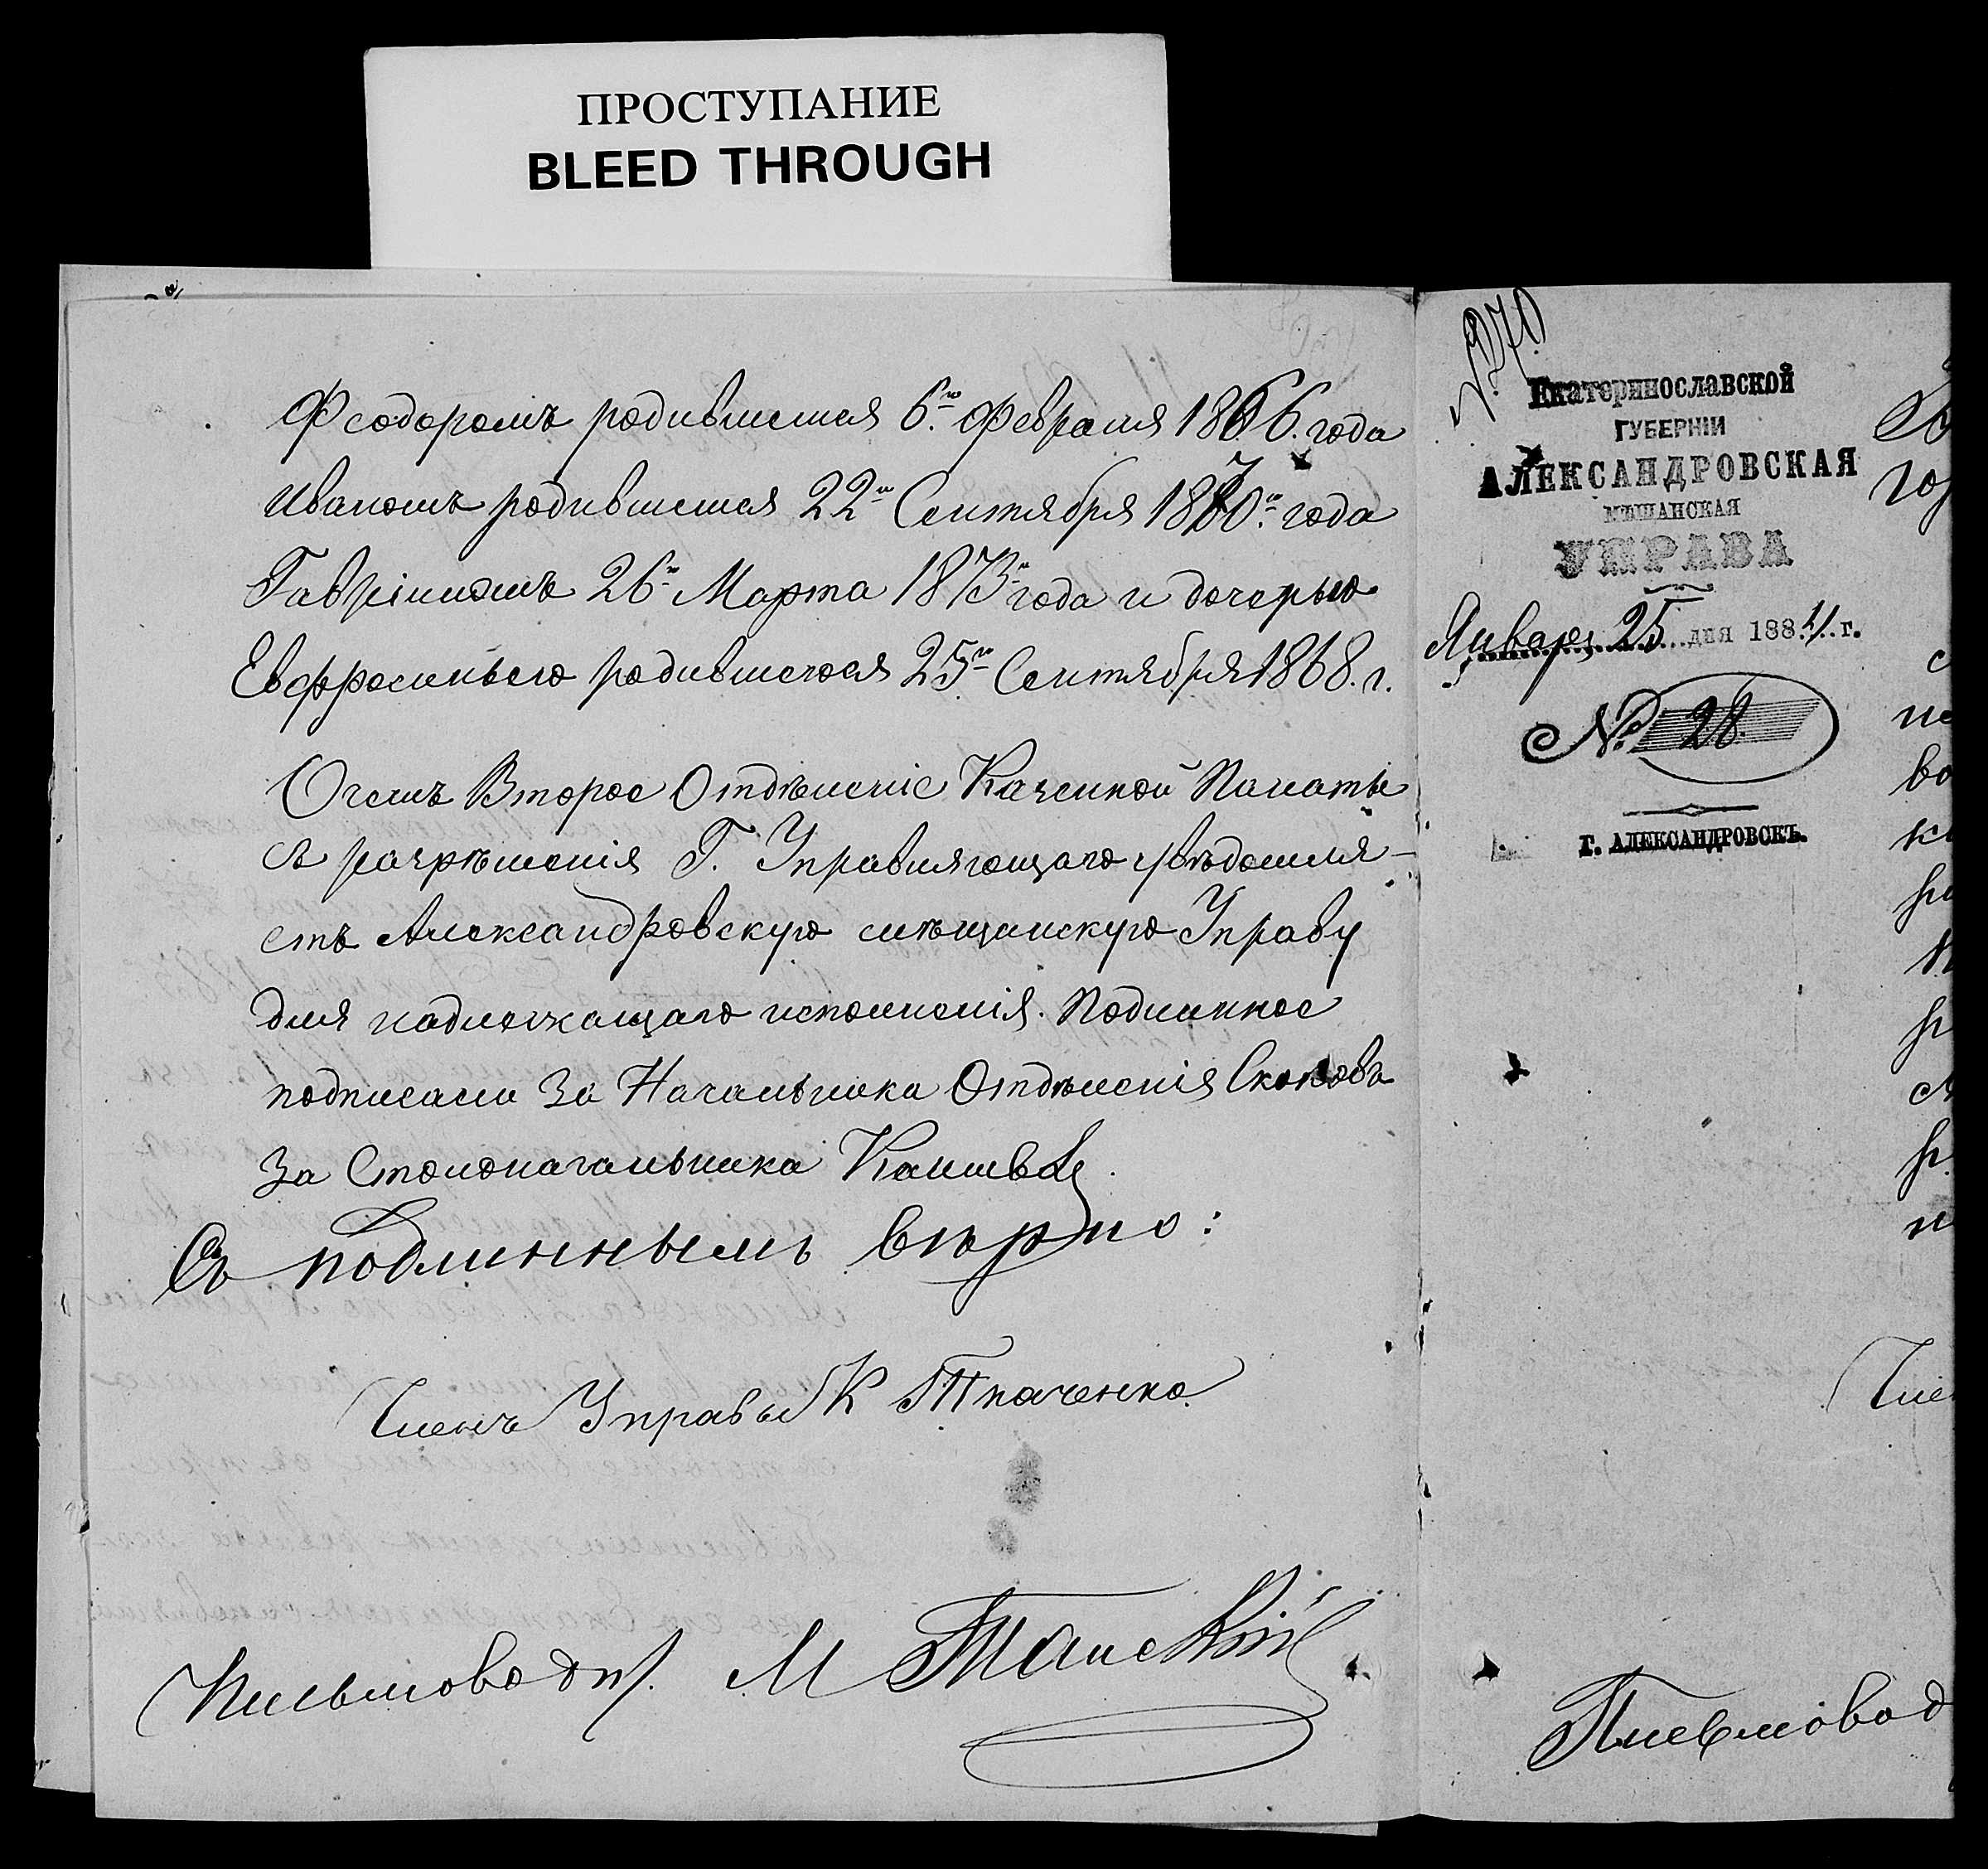 ПРОСТУПАНИЕ
BLEED THROUGH
Феодоромъ родившимся 6го Февраля 1866. года
Иваномъ родившимся 22го Сентября 1870го года
Гавріиломъ 26го Марта 1873го года и дочерью
Евфросиньею родившеюся 25го Сентября 1868. г.
О чемъ Второе Отдѣленіе Казенной Палаты
съ разрѣшенія Г. Управляющаго увѣдомля-
етъ Александровскую мѣщанскую Управу
для надлежащаго исполненія. Подлинное
подписали За Начальника Отдѣленія
За Столоначальника
Съ подлиннымъ вѣрно:
Членъ Управы К Ткаченко
Письмовод. М
№ 70
Екатеринославской
ГУБЕРНІИ
АЛЕКСАНДРОВСКАЯ
МѢЩАНСКАЯ
УПРАВА
Января 25 дня 1884 г.
№ 28.
Г. АЛЕКСАНДРОВСКЪ.
го
с
не
во
к
р
р
р
н
Член
Письмовод